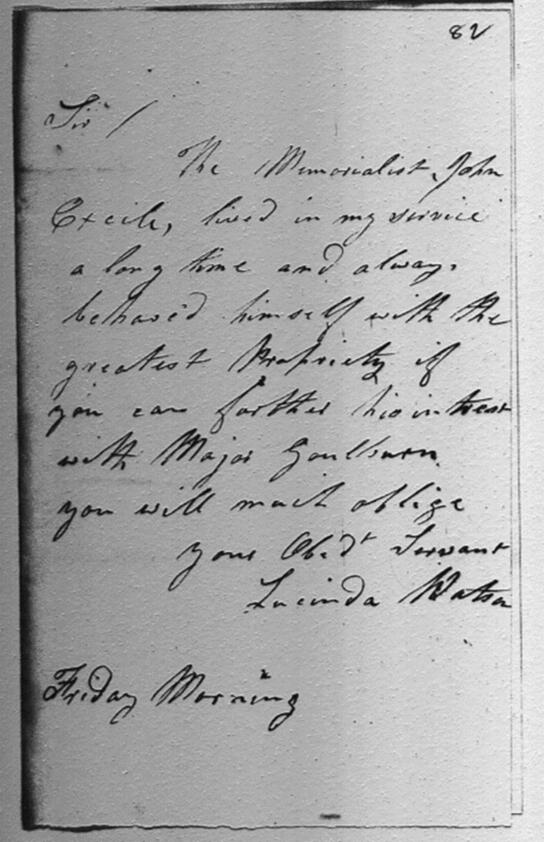 82
Sir /
The Memorialist John
lived in my service
a long time and always
behaved himself with the
greatest Propriety if
you can farther his intrest
with Major Goulburn
you will much oblige
your Obed^t Servant
Lucinda Watson
Friday Morning